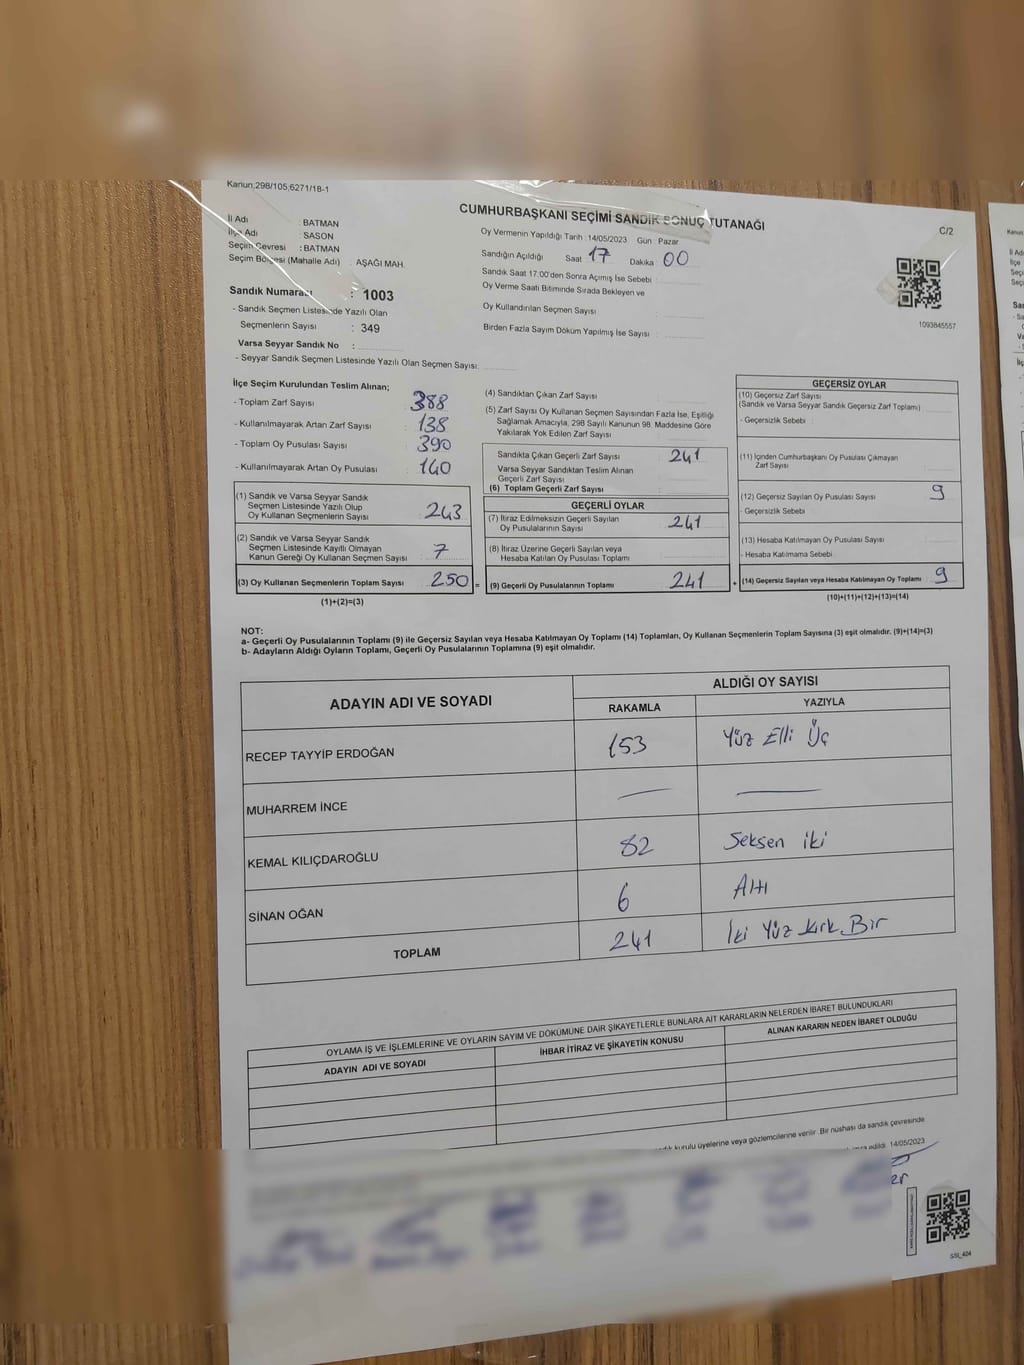 Kanun;298/105;6271/18-1
CUMHURBAŞKANI SEÇİMİ SANDIK SONUÇ TUTANAĞI
C/2
İl Adı : BATMAN
İlçe Adı : SASON
Seçim Çevresi : BATMAN
Seçim Bölgesi (Mahalle Adı) : AŞAĞI MAH.
Sandık Numarası : 1003
- Sandık Seçmen Listesinde Yazılı Olan
Seçmenlerin Sayısı : 349
Varsa Seyyar Sandık No :
- Seyyar Sandık Seçmen Listesinde Yazılı Olan Seçmen Sayısı:
Oy Vermenin Yapıldığı Tarih : 14/05/2023 Gün : Pazar
Sandığın Açıldığı Saat 17 Dakika 00
Sandık Saat 17:00'den Sonra Açılmış İse Sebebi :
Oy Verme Saati Bitiminde Sırada Bekleyen ve
Oy Kullandırılan Seçmen Sayısı :
Birden Fazla Sayım Döküm Yapılmış İse Sayısı :
1093845557
İlçe Seçim Kurulundan Teslim Alınan;
- Toplam Zarf Sayısı : 388
- Kullanılmayarak Artan Zarf Sayısı : 138
- Toplam Oy Pusulası Sayısı : 390
- Kullanılmayarak Artan Oy Pusulası : 140
(1) Sandık ve Varsa Seyyar Sandık
Seçmen Listesinde Yazılı Olup
Oy Kullanan Seçmenlerin Sayısı : 243
(2) Sandık ve Varsa Seyyar Sandık
Seçmen Listesinde Kayıtlı Olmayan
Kanun Gereği Oy Kullanan Seçmen Sayısı : 7
(3) Oy Kullanan Seçmenlerin Toplam Sayısı : 250 =
(1)+(2)=(3)
(4) Sandıktan Çıkan Zarf Sayısı :
(5) Zarf Sayısı Oy Kullanan Seçmen Sayısından Fazla İse, Eşitliği
Sağlamak Amacıyla; 298 Sayılı Kanunun 98. Maddesine Göre
Yakılarak Yok Edilen Zarf Sayısı :
Sandıkta Çıkan Geçerli Zarf Sayısı : 241
Varsa Seyyar Sandıktan Teslim Alınan
Geçerli Zarf Sayısı :
(6) Toplam Geçerli Zarf Sayısı :
GEÇERLİ OYLAR
(7) İtiraz Edilmeksizin Geçerli Sayılan
Oy Pusulalarının Sayısı : 241
(8) İtiraz Üzerine Geçerli Sayılan veya
Hesaba Katılan Oy Pusulası Toplamı :
(9) Geçerli Oy Pusulalarının Toplamı : 241 +
GEÇERSİZ OYLAR
(10) Geçersiz Zarf Sayısı
(Sandık ve Varsa Seyyar Sandık Geçersiz Zarf Toplamı) :
- Geçersizlik Sebebi :
(11) İçinden Cumhurbaşkanı Oy Pusulası Çıkmayan
Zarf Sayısı :
(12) Geçersiz Sayılan Oy Pusulası Sayısı : 9
- Geçersizlik Sebebi :
(13) Hesaba Katılmayan Oy Pusulası Sayısı :
- Hesaba Katılmama Sebebi :
(14) Geçersiz Sayılan veya Hesaba Katılmayan Oy Toplamı : 9
(10)+(11)+(12)+(13)=(14)
NOT:
a- Geçerli Oy Pusulalarının Toplamı (9) ile Geçersiz Sayılan veya Hesaba Katılmayan Oy Toplamı (14) Toplamları, Oy Kullanan Seçmenlerin Toplam Sayısına (3) eşit olmalıdır. (9)+(14)=(3)
b- Adayların Aldığı Oyların Toplamı, Geçerli Oy Pusulalarının Toplamına (9) eşit olmalıdır.
ADAYIN ADI VE SOYADI
ALDIĞI OY SAYISI
RAKAMLA YAZIYLA
RECEP TAYYİP ERDOĞAN 153 Yüz Elli Üç
MUHARREM İNCE — —
KEMAL KILIÇDAROĞLU 82 Seksen iki
SİNAN OĞAN 6 Altı
TOPLAM 241 İki Yüz Kırk Bir
OYLAMA İŞ VE İŞLEMLERİNE VE OYLARIN SAYIM VE DÖKÜMÜNE DAİR ŞİKAYETLERLE BUNLARA AİT KARARLARIN NELERDEN İBARET BULUNDUKLARI
ADAYIN ADI VE SOYADI İHBAR İTİRAZ VE ŞİKAYETİN KONUSU ALINAN KARARIN NEDEN İBARET OLDUĞU
kurulu üyelerine veya gözlemcilerine verilir. Bir nüshası da sandık çevresinde
edildi. 14/05/2023
SSI_404